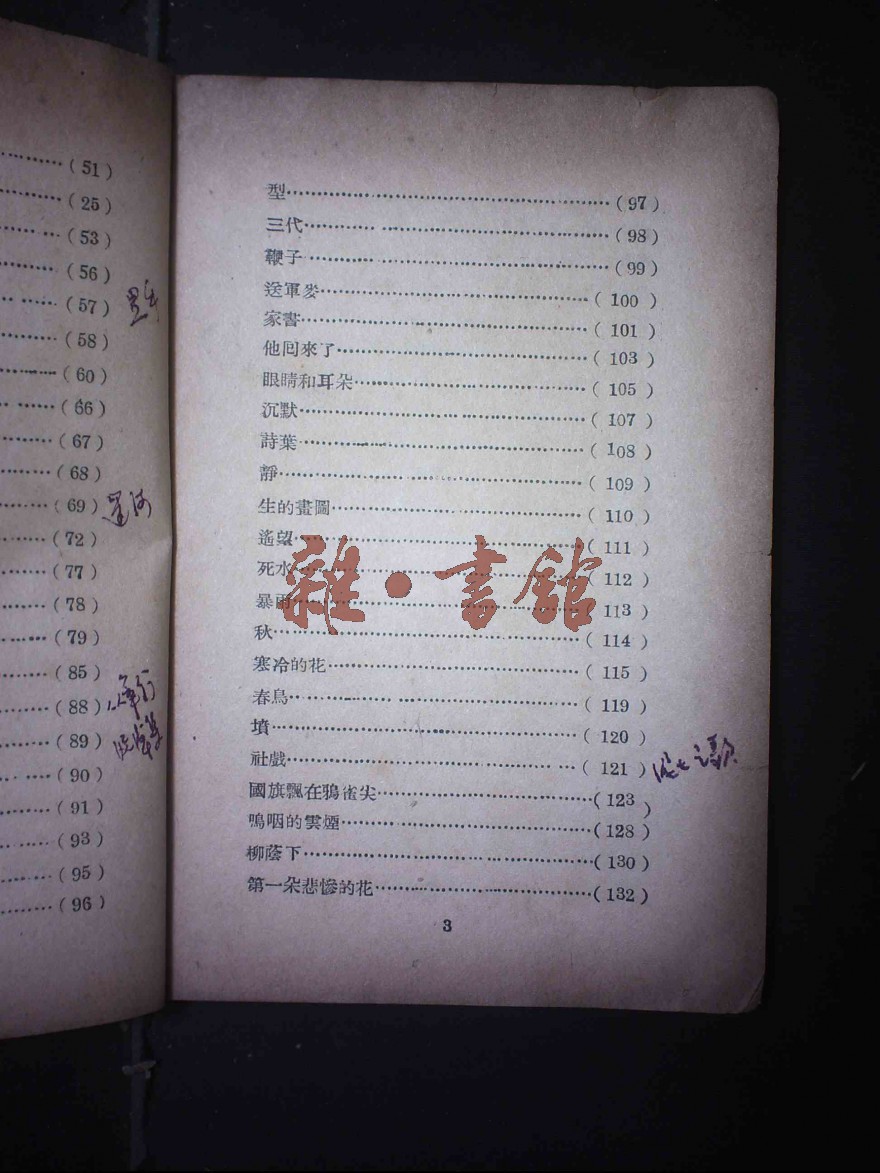 (51)
(25)
(53)
(56)
(57)
(58)
(60)
(66)
(67)
(68)
(69) 運河
(72)
(77)
(78)
(79)
(85)
(88)
(89)
(90)
(91)
(93)
(95)
(96)
型……(97)
三代……(98)
鞭子……(99)
送軍麥……(100)
家書……(101)
他囘來了……(103)
眼睛和耳朵……(105)
沉默……(107)
詩葉……(108)
靜……(109)
生的畫圖……(110)
遙望……(111)
死水……(112)
暴雨……(113)
秋……(114)
寒冷的花……(115)
春鳥……(119)
墳……(120)
社戲……(121)
國旗飄在鴉雀尖……(123)
嗚咽的雲煙……(128)
柳蔭下……(130)
第一朵悲慘的花……(132)
3
雜·書館